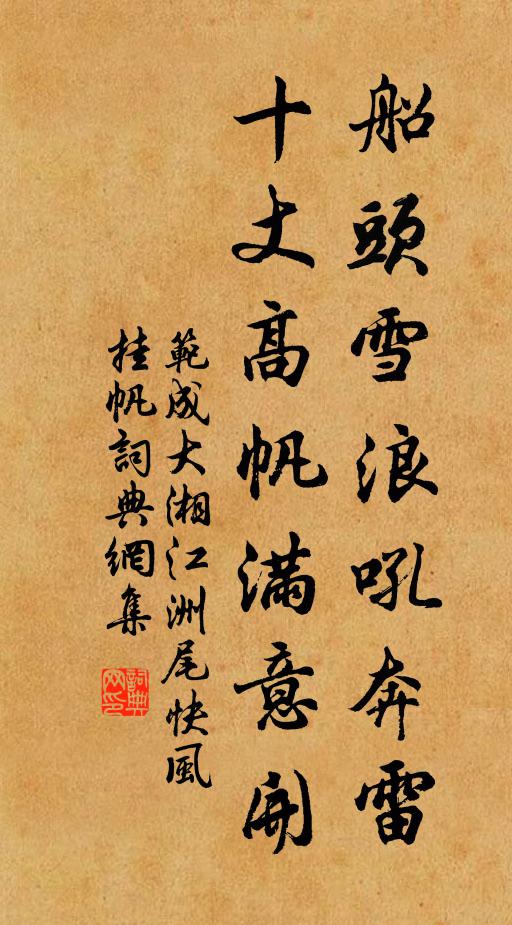 船頭雪浪吼奔雷
十丈高帆滿意開
範成大湘江洲尾快風
挂帆詞典網集
詞典
网印